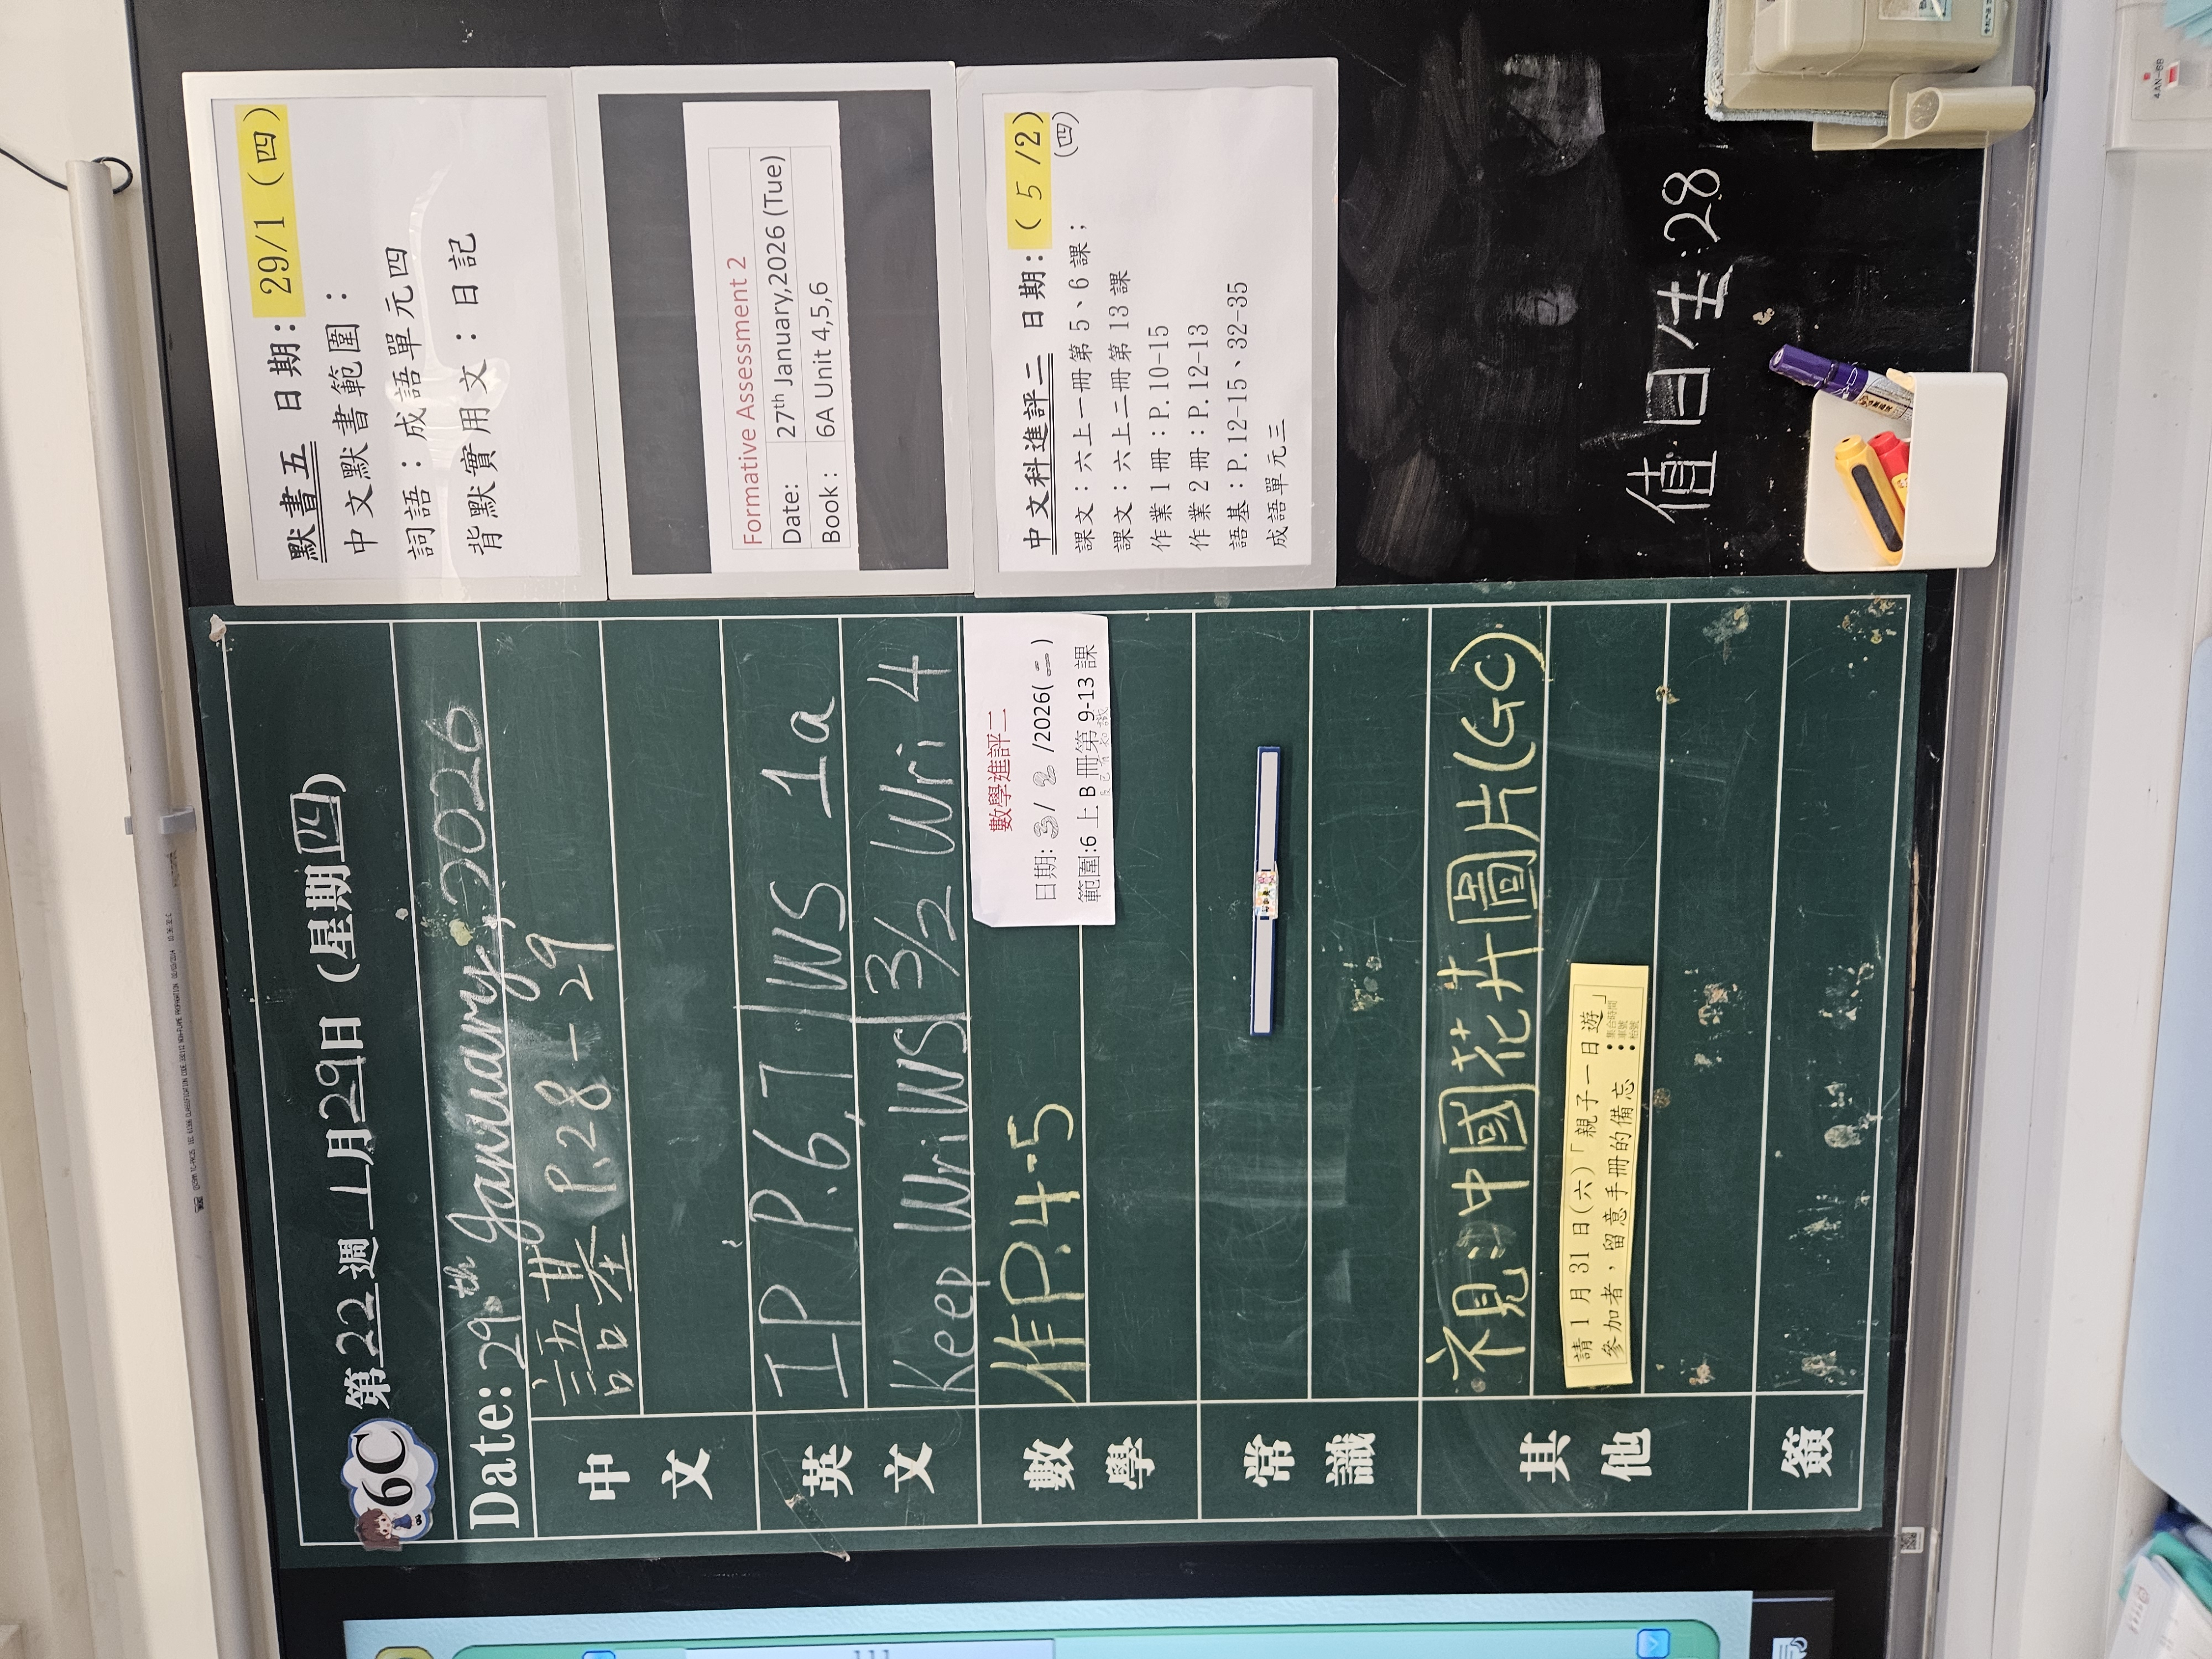 6C 第22週 1月29日 (星期四)
Date: 29th January, 2026
中文
語基 P.28-29
英文
IP P.6,7 | WS 1a
Keep WriWS | 3/2 Wri 4
數學
作P.4-5
數學進評二
日期: 3/2/2026(二)
範圍:6上B冊第9-13課
常識
其他
視:中國花卉圖片(GC)
請1月31日(六)「親子一日遊」
參加者,留意手冊的備忘
• 集合時間
• 車號
• 枱號
簽
默書五 日期:29/1 (四)
中文默書範圍:
詞語:成語單元四
背默實用文:日記
Formative Assessment 2
Date: 27th January,2026 (Tue)
Book : 6A Unit 4,5,6
中文科進評二 日期:( 5 /2)
(四)
課文:六上一冊第5、6課;
課文:六上二冊第13課
作業1冊:P.10-15
作業2冊:P.12-13
語基:P.12-15、32-35
成語單元三
值日生:28
4AN-BB